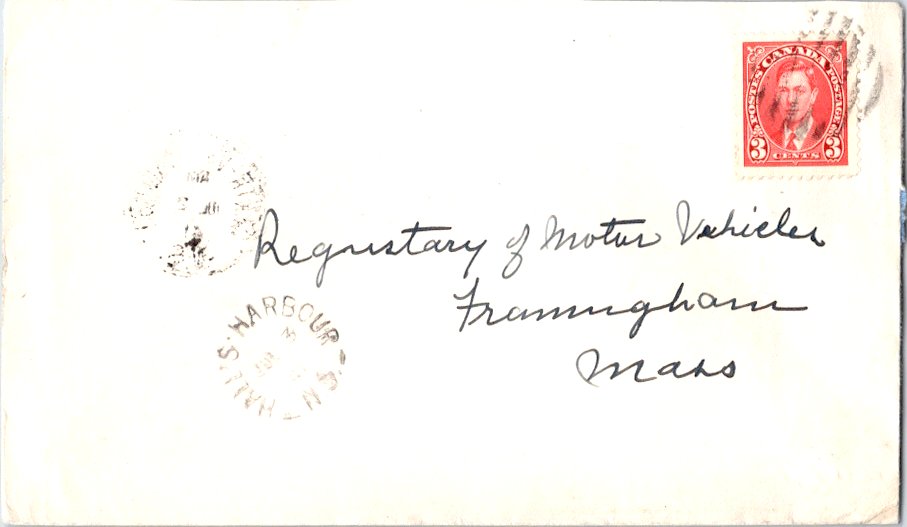 POSTES CANADA POSTAGE
3 CENTS 3
Regustary of Motor Vehicles
Framingham
Mass
HALL'S HARBOUR - N.S.